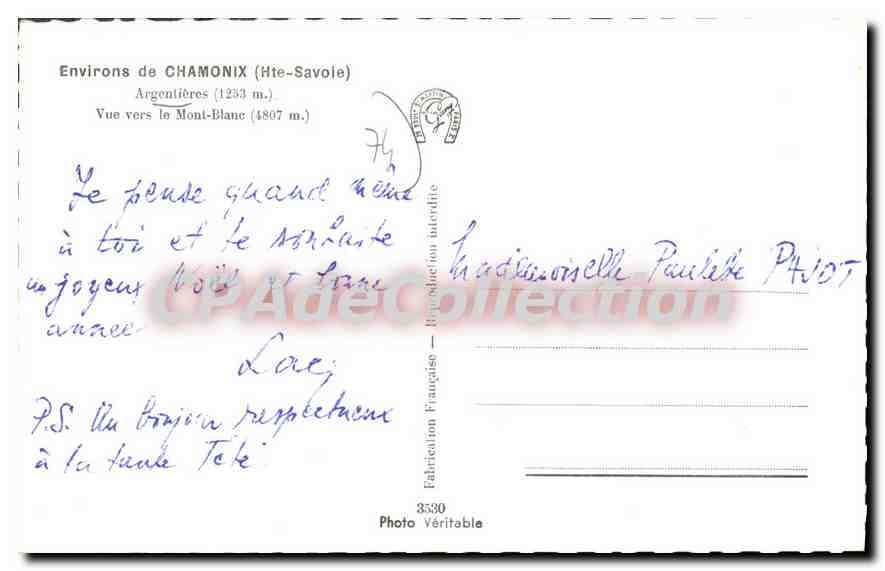 Environs de CHAMONIX (Hte-Savoie)
Argentières (1253 m.)
Vue vers le Mont-Blanc (4807 m.)
74
Je pense quand même
à toi et te souhaite
un joyeux Noël et bonne
année
P.S. Un bonjour respectueux
à la tante Teté
Fabrication Française — Reproduction interdite
Mademoiselle Paulette PAJOT
CPAdeCollection
3530
Photo Véritable